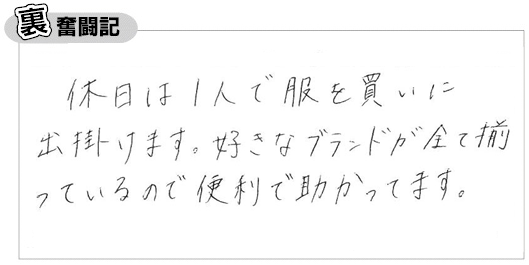 裏奮闘記
休日は1人で服を買いに
出掛けます。好きなブランドが全て揃
っているので便利で助かってます。